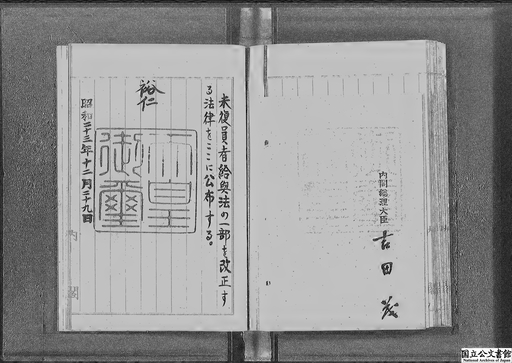 未復員者給與法の一部を改正す
る法律をここに公布する。
裕仁
天皇
御璽
昭和二十三年十二月二十九日
内閣
内閣総理大臣
吉田茂
国立公文書館
National Archives of Japan